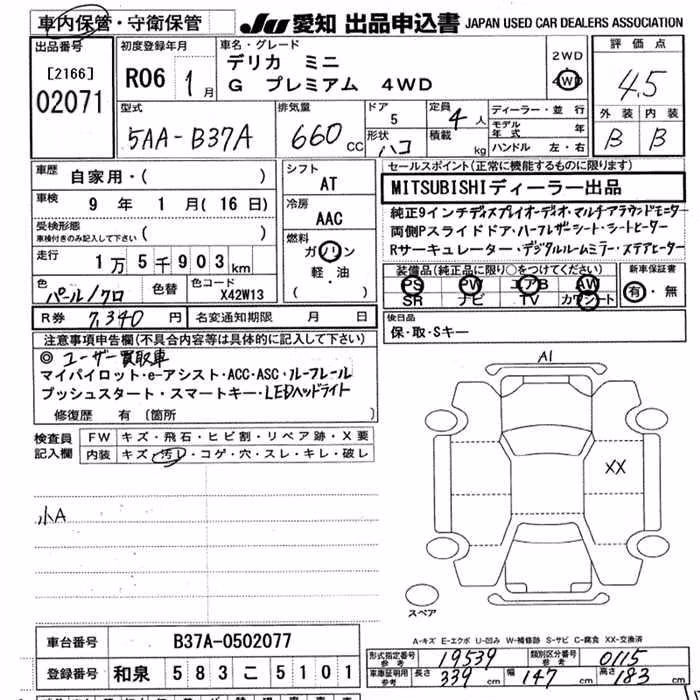 車内保管・守衛保管 JU 愛知 出品申込書 JAPAN USED CAR DEALERS ASSOCIATION
出品番号 初度登録年月 車名・グレード 評価点
[2166] R06 1月 デリカ ミニ 2WD
02071 G プレミアム 4WD 4WD 4.5
型式 排気量 ドア 定員 ディーラー・並行 外装 内装
5AA-B37A 660 CC 5 4人 モデル年式 年 B B
形状 ハコ 積載 kg ハンドル 左・右
車歴 自家用・( ) シフト AT セールスポイント(正常に機能するものに限ります)
MITSUBISHIディーラー出品
車検 9年 1月(16日) 冷房 AAC 純正9インチディスプレイオーディオ・マルチアラウンドモニター
受検形態 車検付きのみ記入して下さい ( ) 燃料 ガソリン 両側Pスライドドア・ハーフレザーシート・シートヒーター
走行 1万5千903km 軽・油 ( ) Rサーキュレーター・デジタルルームミラー・ステアヒーター
色 パール/クロ 色替 色コード X42W13 装備品(純正品に限り○をつけてください) 新車保証書
PS PW エアB AW 有・無
SR ナビ TV カワシート
R券 7,340円 名変通知期限 月 日 後日品
保・取・Sキー
注意事項申告欄(不具合内容等は具体的に記入して下さい)
◎ユーザー買取車 A1
マイパイロット・e-アシスト・ACC・ASC・ルーフレール
プッシュスタート・スマートキー・LEDヘッドライト
修復歴 有 (箇所 )
検査員記入欄 FW キズ・飛石・ヒビ割・リペア跡・X要
内装 キズ・汚レ・コゲ・穴・スレ・キレ・破レ XX
小A
スペア
A-キズ E-エクボ U-凹み W-補修跡 S-サビ C-腐食 XX-交換済
車台番号 B37A-0502077
形式指定番号 参考 19539 類別区分番号 参考 0115
登録番号 和泉 583 こ 5101
車庫証明用 参考 長さ 339 cm 幅 147 cm 高さ 183 cm